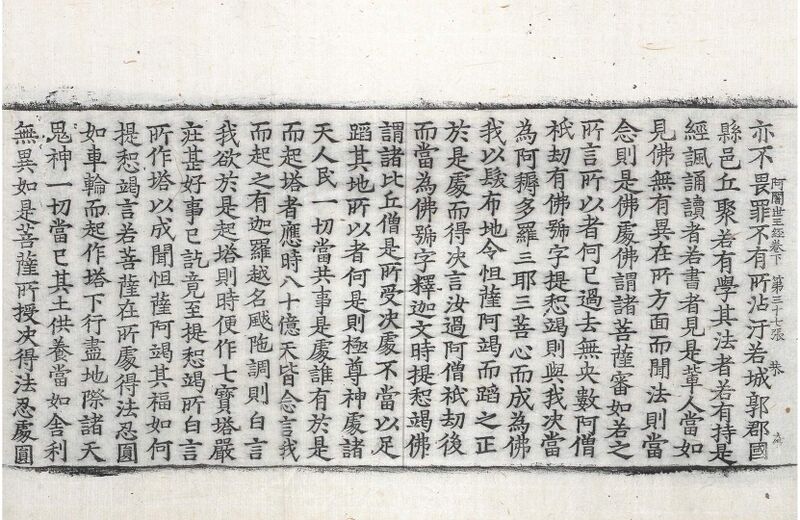 亦不畏罪不有所沾汙若城郭郡國
阿闍世王經卷下　第三十七張　恭
縣邑丘聚若有學其法者若有持是
經諷誦讀者若書者見是輩人當如
見佛無有異在所方面而聞法則當
念則是佛處佛謂諸菩薩審如若之
所言所以者何已過去無央數阿僧
祇劫有佛號字提惒竭則與我決當
為阿耨多羅三耶三菩心而成為佛
我以髮布地令怛薩阿竭而蹈之正
於是處而得決言汝過阿僧祇劫後
而當為佛號字釋迦文時提惒竭佛
謂諸比丘僧是所受決處不當以足
蹈其地所以者何是則極尊神處諸
天人民一切當共事是處誰有於是
而起塔者應時八十億天皆念言我
而起之有迦羅越名颰陁調則白言
我欲於是起塔則時便作七寶塔嚴
莊甚好事已訖竟至提惒竭所白言
所作塔以成聞怛薩阿竭其福如何
提惒竭言若菩薩在所處得法忍圓
如車輪而起作塔下行盡地際諸天
鬼神一切當已其土供養當如舍利
無異如是菩薩所授決得法忍處圓